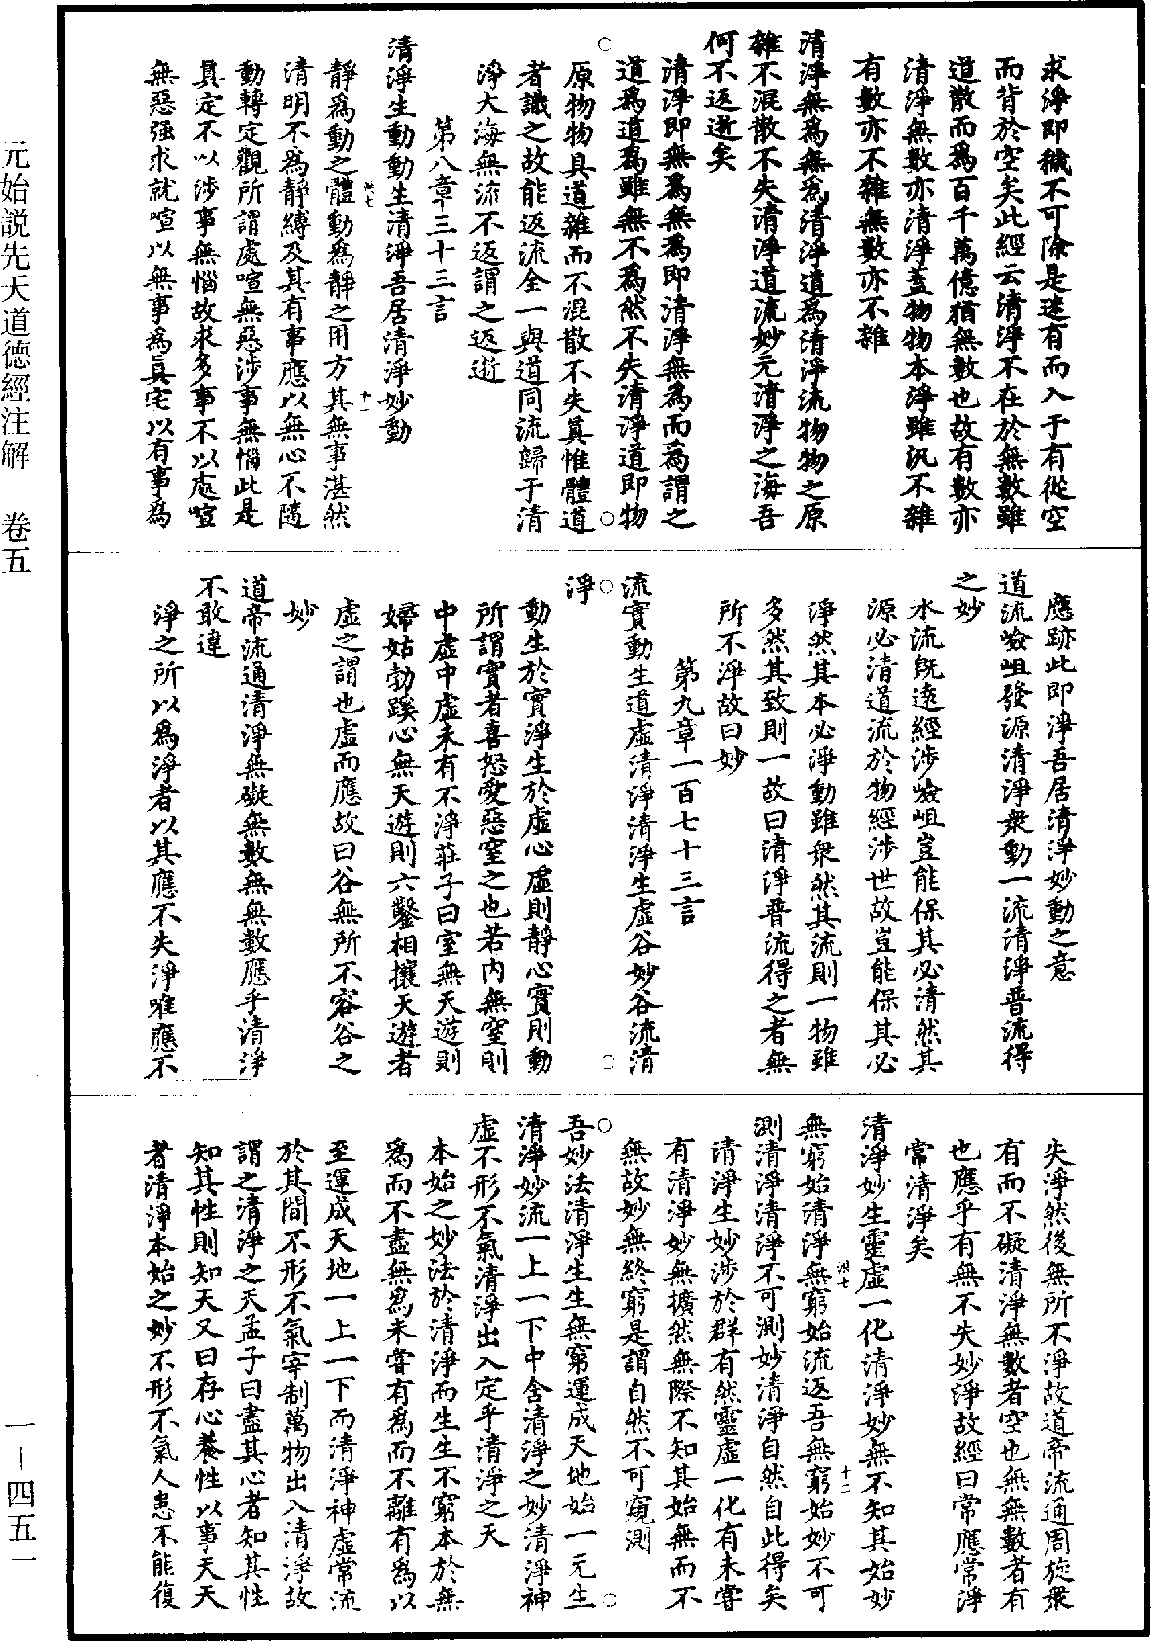 求淨即穢不可除是迷有而入于有從空
而背於空矣此經云清淨不在於無數雖
道散而為百千萬億猶無數也故有數亦
清淨無數亦清淨蓋物物本淨雖汎不雜
有數亦不雜無數亦不雜
清淨無為無為清淨道為清淨流物物之原
雜不混散不失清淨道流妙元清淨之海吾
何不返逝矣
清淨即無為無為即清淨無為而為謂之
道為道為雖無不為然不失清淨道即物
原物物具道雜而不混散不失真惟體道
者識之故能返流全一與道同流歸于清
淨大海無流不返謂之返逝
第八章三十三言
清淨生動動生清淨吾居清淨妙動
靜為動之體動為靜之用方其無事湛然
清明不為靜縛及其有事應以無心不隨
動轉定觀所謂處喧無惡涉事無惱此是
真定不以涉事無惱故求多事不以處喧
無惡强求就喧以無事為真宅以有事為
應跡此即淨吾居清淨妙動之意
道流嶮岨發源清淨衆動一流清淨普流得
之妙
水流既遠經涉嶮岨豈能保其必清然其
源必清道流於物經涉世故豈能保其必
淨然其本必淨動雖衆然其流則一物雖
多然其致則一故曰清淨普流得之者無
所不淨故曰妙
第九章一百七十三言
流實動生道虛清淨清淨生虛谷妙谷流清
淨
動生於實淨生於虛心虛則靜心實則動
所謂實者喜怒愛惡窒之也若內無窒則
中虛中虛未有不淨莊子曰室無天遊則
婦姑勃蹊心無天遊則六鑿相攘天遊者
虛之謂也虛而應故曰谷無所不容谷之
妙
道帝流通清淨無礙無數無無數應乎清淨
不敢違
淨之所以為淨者以其應不失淨唯應不
失淨然後無所不淨故道帝流通周旋衆
有而不礙清淨無數者空也無無數者有
也應乎有無不失妙淨故經曰常應常淨
常清淨矣
清淨妙生靈虛一化清淨妙無不知其始妙
無窮始清淨無窮始流返吾無窮始妙不可
測清淨清淨不可測妙清淨自然自此得矣
清淨生妙涉於群有然靈虛一化有未嘗
有清淨妙無擴然無際不知其始無而不
無故妙無終窮是謂自然不可窺測
吾妙法清淨生生無窮運成天地始一元生
清淨妙流一上一下中含清淨之妙清淨神
虛不形不氣清淨出入定乎清淨之天
本始之妙法於清淨而生生不窮本於無
為而不盡無為未嘗有為而不離有為以
至運成天地一上一下而清淨神虛常流
於其間不形不氣宰制萬物出入清淨故
謂之清淨之天孟子曰盡其心者知其性
知其性則知天又曰存心養性以事天天
者清淨本始之妙不形不氣人患不能復
元始説先天道德經注解　卷五
一—四五一